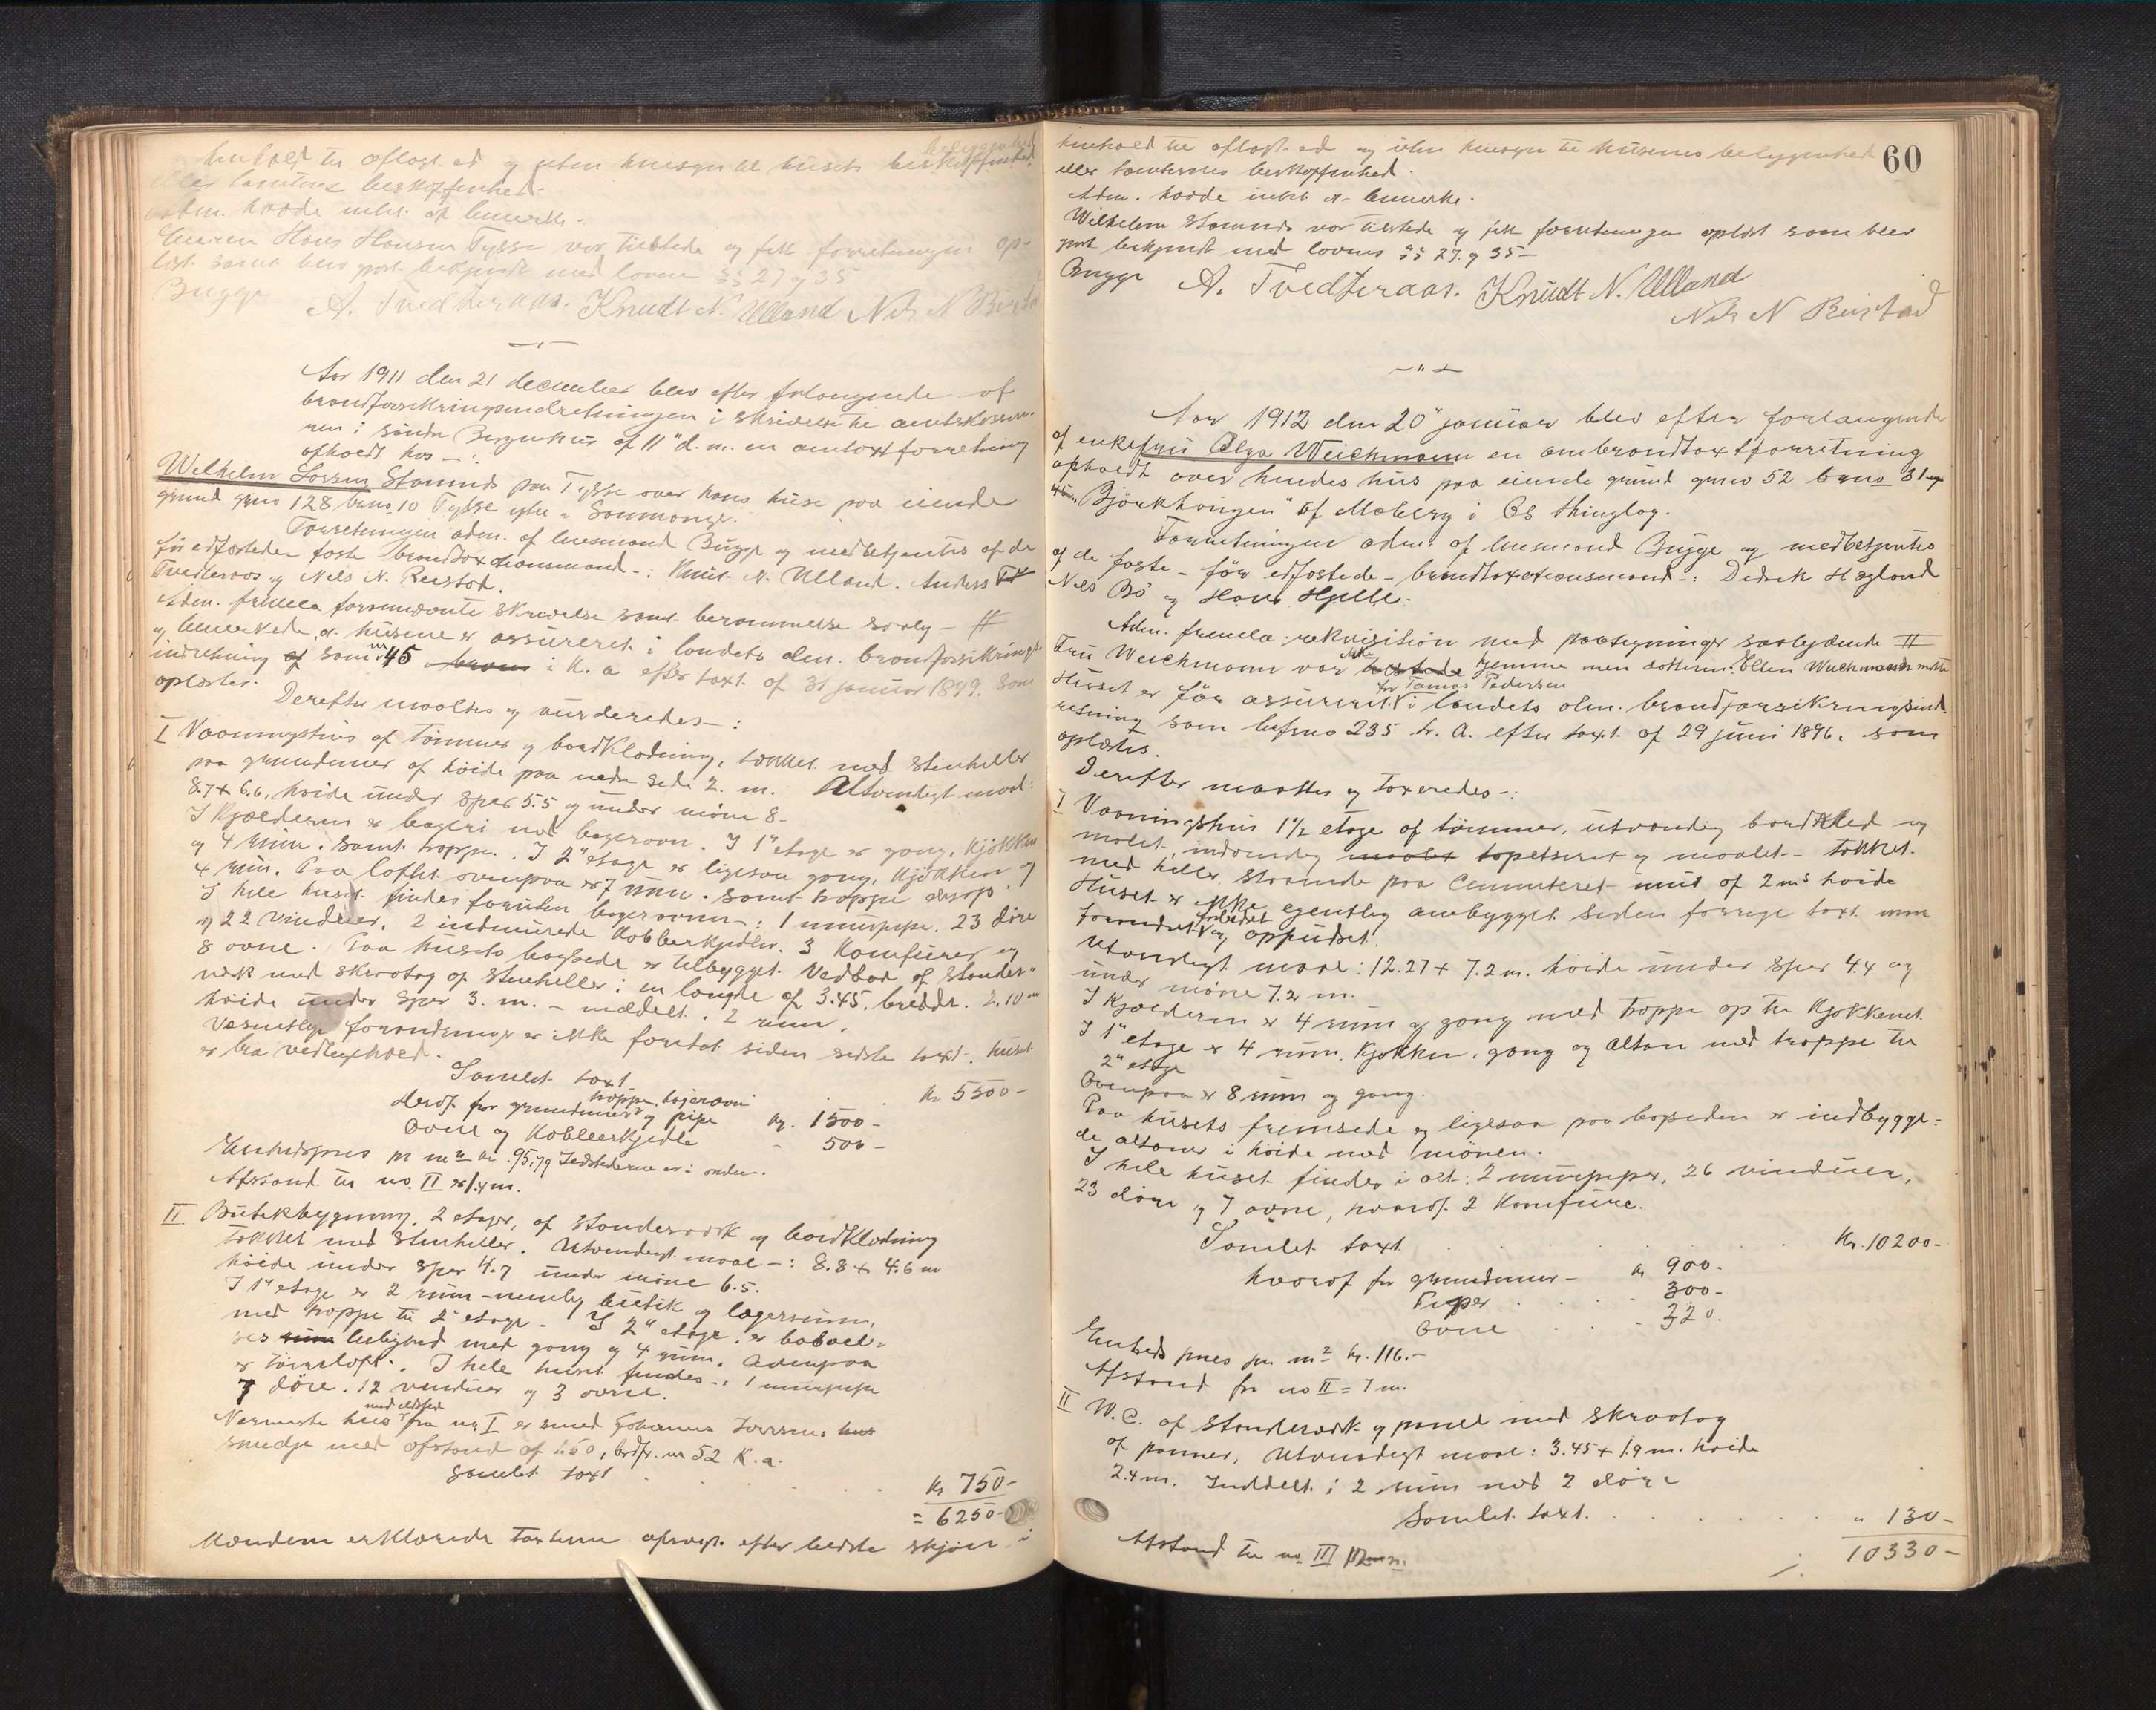 beliggenhed
henhold til aflagt ed og uten hensyn til husets beskaffenhed
eller tomtens beskaffenhed.
Adm. hadde intet at bemerke.
Eieren Hans Hansen Tysse var tilstede og fik forretningen op-
læst samt blev gjort bekjendt med lovens §§ 27 og 35
Bugge A. Tvedteraas. Knudt N. Ulland Nils N Reistad
Aar 1911 den 21 december blev efter forlangende af
brandforsikringsindretningen i skrivelse til amtskasser-
ren i søndre Bergenhus af 11" d.m. en omtaxtforretning
afholdt hos -:
Wilhelm Larsen Stamnes paa Tysse over hans huse paa eiende
grund gno 128 bno 10 Tysse ytre i Samnanger.
Forretningen adm. af lensmand Bugge og medbetjentes af de
før edfæstede faste brandtaxtionsmænd -: Knut N. Ulland. Anders
Tvedteraas og Nils N. Reistad.
Adm. fremla forannævnte skrivelse samt berammelse saaly - #
og bemerkede, at husene er assureret i landets alm. brandforsikrings-
indretning som nr 45 i K. a efter taxt af 31 januar 1899. som
oplæstes.
Derefter maaltes og vurderedes -:
I Vaaningshus af tømmer og bordklædning, tækket med stenheller
paa grundmur af høide paa nedre side 2. m. Utvendigt maal:
8.7 + 6.6, høide under sper 5.5 og under møne 8-
I Kjælderen er bageri med bagerovn. I 1" etage er gang, kjøkken
og 4 rum. samt trappe. I 2" etage er ligesaa gang, kjøkken og
4 rum. Paa loftet ovenpaa er 7 rum. samt trappe derop.
I hele huset findes foruten bagerovnen -: 1 murpipe. 23 døre
og 22 vinduer, 2 indmurede kobberkjedler. 3 Komfurer og
8 ovne. Paa husets bagside er tilbygget Vedbod af stender-
verk med skraatag af stenheller i en længde af 3.45. bredde. 2.10 m
høide under sper 3. m. - inddelt i 2 rum.
Væsentlige forandringer er ikke foretat siden sidste taxt. huset
er bra vedlikeholdt.
Samlet taxt . . Kr 5500-
trappe, bagerovn
Herof for grundmur og pipe Kr. 1500-
Ovne og Kobberkjedle - 500-
Enhedspris pr m² kr. 95,79 Ildstederne er i orden.
Afstand til no. II er 1.4 m.
II Butikbygning, 2 etager, af stenderverk og bordklædning
tækket med stenheller. Utvendigt maal -: 8.8 + 4.6 m
høide under sper 4.7 under møne 6.5.
I 1" etage er 2 rum - nemlig butik og lagerrum,
med trappe til 2" etage. I 2" etage er beboel-
ses rum leilighed med gang og 4 rum. Ovenpaa
er tørreloft. I hele huset findes -: 1 murpipe
7 døre. 12 vinduer og 3 ovne.
med ildsted
Nærmeste hus fra no I er smed Johannes Larsens hus
smedje med afstand af 1.50, brdfr. nr 52 K. a.
Samlet taxt . . . Kr 750-
= 6250-
Mændene erklærede taxterne afsagt efter bedste skjøn i
60
henhold til aflagt ed og uten hensyn til husenes beliggenhed
eller tomternes beskaffenhed.
Adm. hadde intet at bemerke.
Wilhelm Stamnes var tilstede og fik forretningen oplæst som blev
gjort bekjendt med lovens §§ 27 og 35-
Bugge A. Tvedteraas. Knudt N. Ulland
Nils N Reistad
Aar 1912 den 20" januar blev efter forlangende
af enkefru Olga Weichmann en ombrandtaxtforretning
afholdt over hendes hus paa eiende grund gno 52 bno 31
"Bjørkhaugen" af Moberg i Os thinglag.
Forretningen adm. af lensmand Bugge og medbetjentes
af de faste - før edfæstede - brandtaxtionsmænd -: Didrik Hagland
Nils Bø og Hans Hjelle.
Adm. fremla rekvisition med paategninger saalydende #
Fru Weichmann var ikke tilstede hjemme men datteren Ellen Weichmann møtte
for Tomas Pedersen
Huset er før assureret i landets alm. brandforsikringsind-
retning som lnfno 235 k. A. efter taxt af 29 juni 1896. som
oplæstes.
Derefter maaltes og taxeredes -:
I Vaaningshus 1½ etage af tømmer, utvendig bordklæd og
malet, indvendig maalet tapetseret og maalet - tækket
med heller, staaende paa Cementeret mur af 2 ms høide
Huset er ikke egentlig ombygget siden forrige taxt men
forandret forbedret og oppudset.
Utvendigt maal: 12.27 + 7.2 m. høide under sper 4.4 og
under møne 7.2 m.
I Kjælderen er 4 rum og gang med trappe op til Kjøkkenet.
I 1" etage er 4 rum, Kjøkken, gang og altan med trappe til
2" etage
Ovenpaa er 8 rum og gang.
Paa husets fremside og ligesaa paa bagsiden er indbygge-
de altaner i høide med mønen.
I hele huset findes i alt: 2 murpiper, 26 vinduer,
23 døre og 7 ovne, hvoraf 2 Komfure.
Samlet taxt . . . . Kr. 10200-
hvoraf for grundmur - Kr 900-
Piper . . . 300-
Ovne . . . 320.
Enheds pris pr m² kr. 116.-
Afstand fra no II = 7 m.
II W.C. af stenderverk og panel med skraatag
af panner, Utvendigt maal: 3.45 + 1.9 m. høide
2.4 m. Inddelt i 2 rum med 2 døre
Samlet taxt. . . . . " 130-
10330-
Afstand til no. III 12 m.